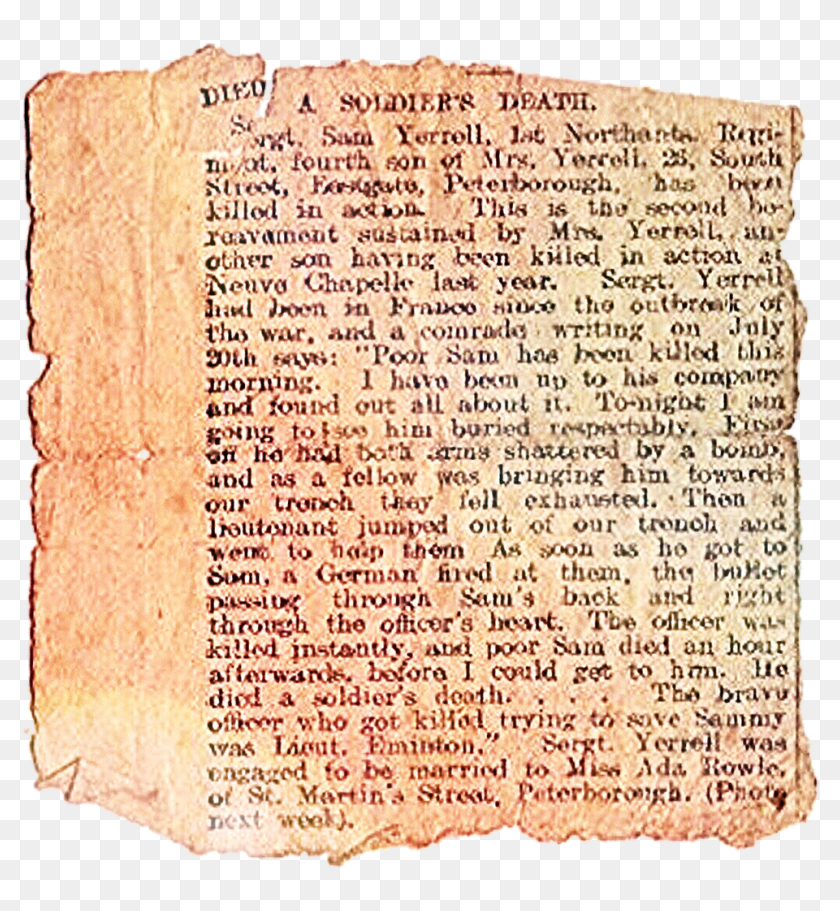 DIED A SOLDIER'S DEATH.
Sergt. Sam Yerrell, 1st Northants. Regi-
ment, fourth son of Mrs. Yerrell, 25, South
Street, Eastgate, Peterborough, has been
killed in action. This is the second be-
reavament sustained by Mrs. Yerrell, an-
other son having been killed in action at
Neuve Chapelle last year. Sergt. Yerrell
had been in France since the outbreak of
the war, and a comrade writing on July
20th says: "Poor Sam has been killed this
morning. I have been up to his company
and found out all about it. To-night I am
going to see him buried respectably. First
on he had both arms shattered by a bomb,
and as a fellow was bringing him towards
our trench they fell exhausted. Then a
lieutenant jumped out of our trench and
went to help them As soon as he got to
Sam, a German fired at them, the bullet
passing through Sam's back and right
through the officer's heart. The officer was
killed instantly, and poor Sam died an hour
afterwards, before I could get to him. He
died a soldier's death. . . . The brave
officer who got killed trying to save Sammy
was Lieut. Eminton." Sergt. Yerrell was
engaged to be married to Miss Ada Rowle,
of St. Martin's Street, Peterborough. (Photo
next week).